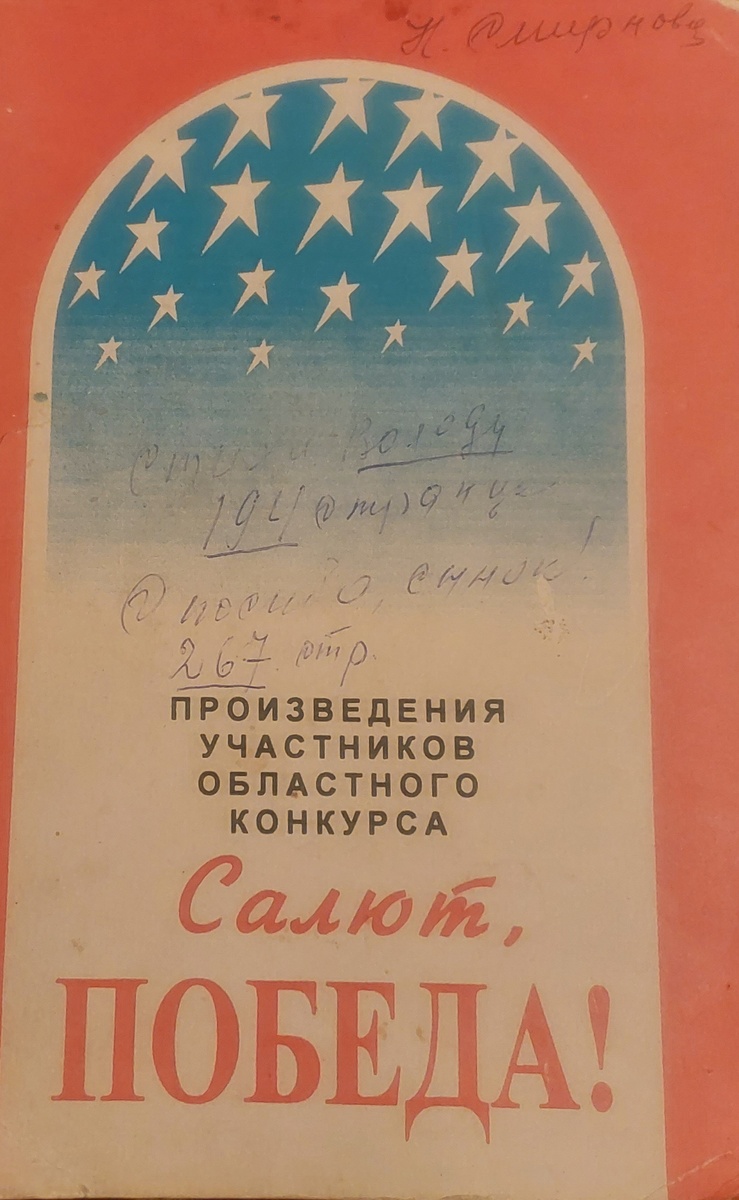 Н. Смирнова
Стихи Володи
194 страница
Спасибо, сынок!
267 стр.
ПРОИЗВЕДЕНИЯ
УЧАСТНИКОВ
ОБЛАСТНОГО
КОНКУРСА
Салют,
ПОБЕДА!